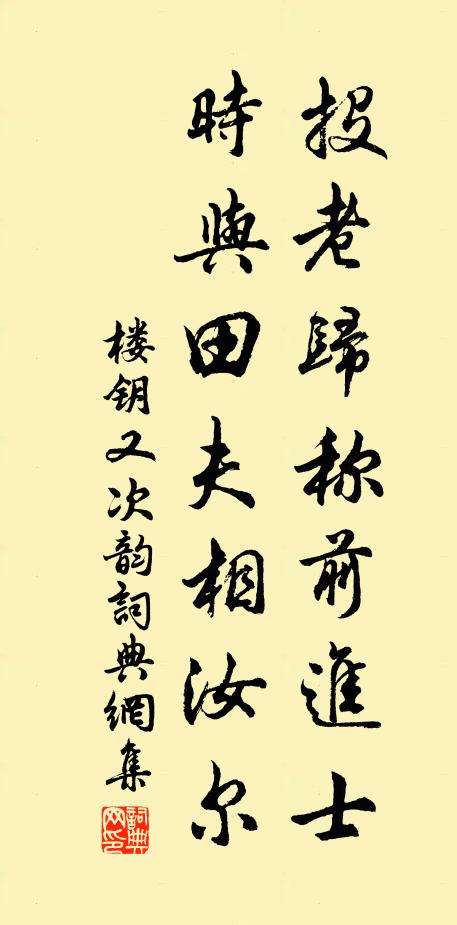 投老歸称前進士
時與田夫相汝尔
楼钥又次韵詞典網集
詞典网印